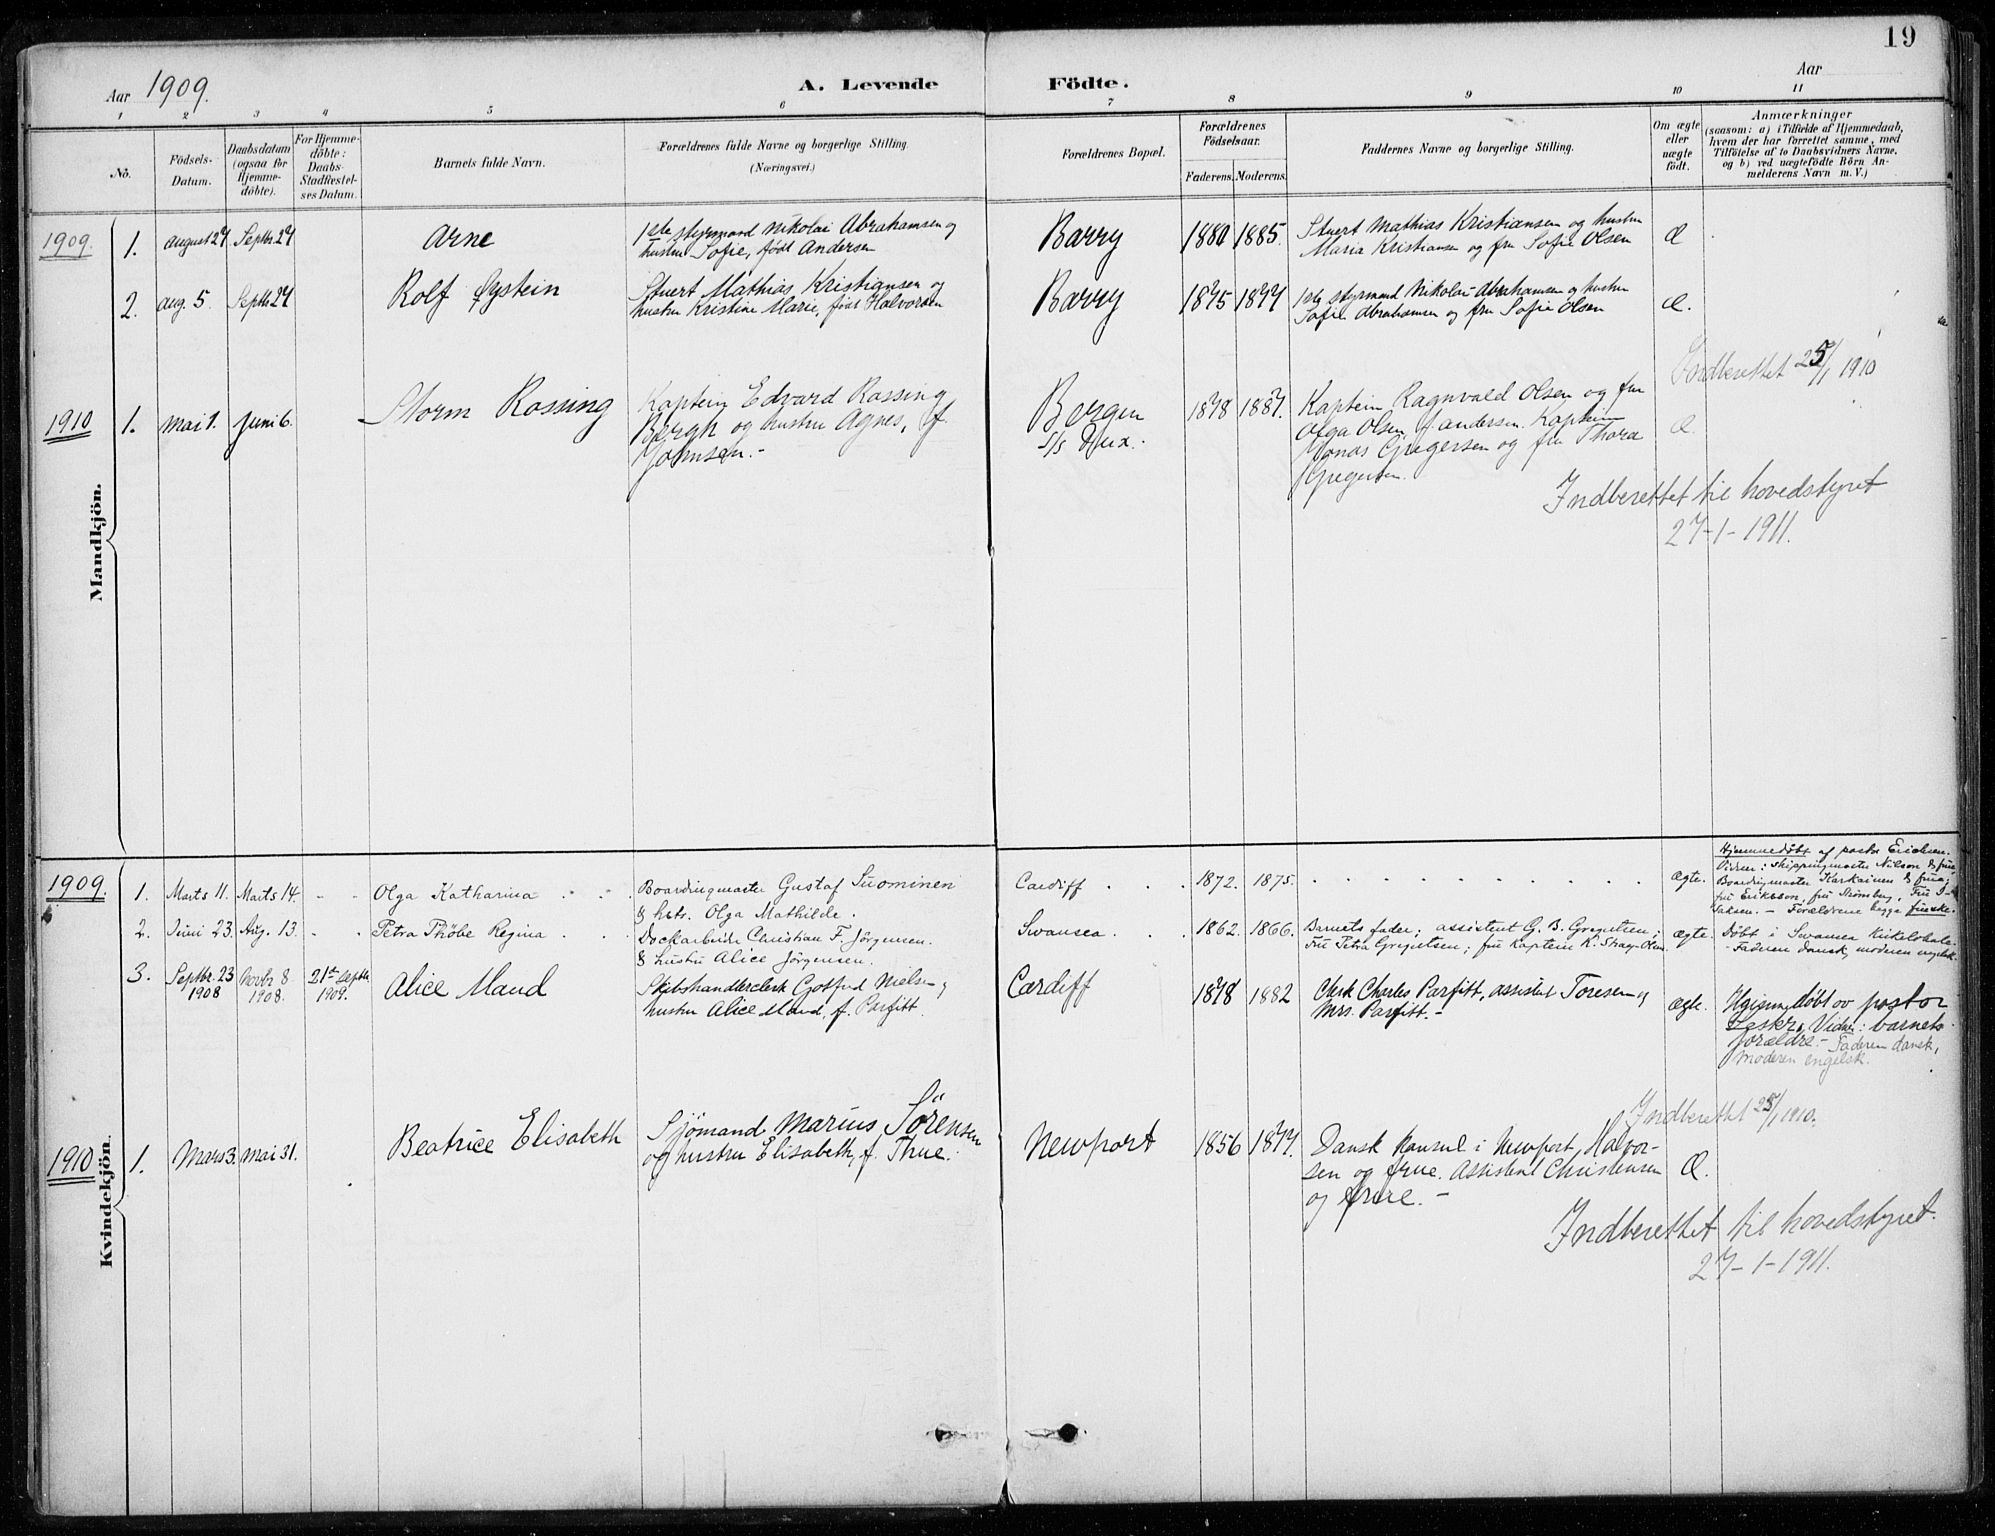 19
Aar 1909.
A. Levende Födte.
Aar
1 2 3 4 5 6 7 8 9 10 11
No.
Födsels-Datum.
Daabsdatum (ogsaa for Hjemme-döbte).
For Hjemme-döbte: Daabs-Stadfæstel-ses Datum.
Barnets fulde Navn.
Forældrenes fulde Navne og borgerlige Stilling.
(Næringsvei.)
Forældrenes Bopæl.
Forældrenes Födselsaar.
Faderens. Moderens.
Faddernes Navne og borgerlige Stilling.
Om ægte eller uægte födt.
Anmærkninger
(saasom: a) i Tilfælde af Hjemmedaab,
hvem der har forrettet samme, med
Tilföielse af to Daabsvidners Navne,
og b) ved uægtefödte Börn An-
melderens Navn m. V.)
Mandkjön.
1909. 1. august 27 Septbr. 27 Arne 1ste styrmand Nikolai Abrahamsen og Barry 1880 1885. Stuert Mathias Kristiansen og hustru Æ
hustru Sofie, født Andersen Maria Kristiansen og fru Sofie Olsen
2. aug. 5. Septb 27 Rolf Øystein Stuert Mathias Kristiansen og Barry 1875 1877 1ste styrmand Nikolai Abrahamsen og hustru Æ.
hustru Kristine Marie, født Halvorsen Sofie Abrahamsen og fru Sofie Olsen
Indberettet 25/1 1910
1910 1. Mai 1. Juni 6. Storm Rossing Kaptein Edvard Rossing Bergen 1878 1887. Kaptein Ragnvald Olsen og fru Æ.
Bergh og hustru Agnes, f. s/s Dux. Olga Olsen f. Andersen. Kaptein
Johnsen.- Jonas Gregersen og fru Thora
Gregersen.
Indberettet til hovedstyret
27-1-1911.
Kvindekjön.
Hjemmedøbt af pastor Erichsen.
Vidner: shippingmaster Nilson & frue
1909. 1. Marts 11. Marts 14. - - Olga Katharina Boardingmaster Gustaf Suominen Cardiff 1872. 1875. ægte. Boardingmaster Karkainen & frue;
& hstr. Olga Mathilde. fru Eriksson, fru Strömberg, Fru I-
saksen. - Forældrene begge finske.
2. Juni 23. Aug. 13. - - Petra Thöbe Regina Dockarbeider Christian F. Jørgensen. Swansea 1862. 1866. Barnets fader; assistent G. B. Gregertsen; ægte. Döbt i Swansea Kirkelokale.
& hustru Alice Jørgensen. Fru Petra Gregertsen; fru kaptein K. Olsen. - Faderen dansk, moderen engelsk.
3. Septbr. 23 1908 Novbr 8 1908. 21st Septbr. 1909. Alice Maud Skibshandlerclerk Gotfred Nielsen og Cardiff 1878 1882 Clerk Charles Parfitt, assistent Toresen og ægte. Hjemmedöbt av pastor
hustru Alice Maud, f. Parfitt. Mrs. Parfitt.- Vidner: barnets
forældre.- Faderen dansk,
moderen engelsk.
Indberettet 25/1 1910.
1910 1. Mars 3. Mai 31. Beatrice Elisabeth Sjömand Marius Sörensen Newport 1856 1877. Dansk konsul i Newport, Halvor- Æ.
og hustru Elisabeth, f. Thue. sen og frue. Assistent Christensen
og frue. -
Indberettet til hovedstyret.
27-1-1911.